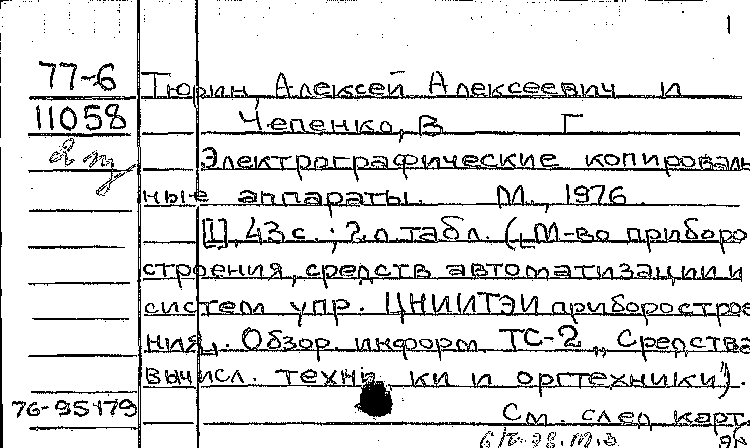 1
77-6 Тюрин Алексей Алексеевич и
11058 Чепенко, В Г
Электрографические копироваль
ные аппараты. М., 1976.
[1], 43 с.; 2 л. табл. (М-во приборо
строения, средств автоматизации и
систем упр. ЦНИИТЭИ приборострое
ния. Обзор. информ ТС-2 „Средства
вычисл. техни ки и оргтехники").
76-95179 См. след карт